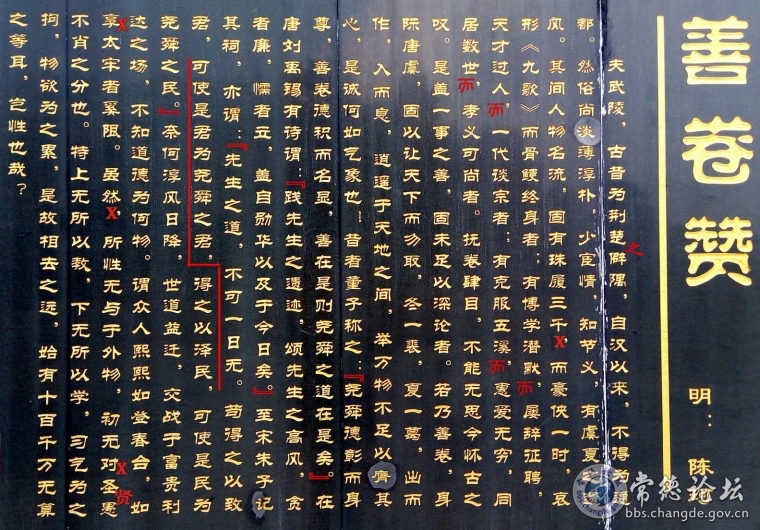 善卷赞
明：陈
夫武陵，古昔为荆楚之僻隅，自汉以来，不得为通
都。然俗尚淡薄淳朴，少宦情，知节义，有虞夏
风。其间人物名流，固有珠履三千X，而豪侠一时，哀
形《九歌》而骨鲠终身者；有博学潜默，而屡辞征聘，
天才过人，而一代谈宗者；有克服五溪，而惠爱无穷，同
居数世，而孝义可尚者。抚卷肆目，不能无思今怀古之
叹。是盖一事之善，固未足以深论者。若乃善卷，身
际唐虞，固以让天下而勿取，冬一裘，夏一葛，出而
作，入而息，逍遥于天地之间，举万物不足以齊其
心，是诚何如气象也！昔者董子称之，『尧舜德彰而身
尊，善卷德积而名显，善在是则尧舜之道在是矣。』在
唐刘禹锡有诗谓：『践先生之遗迹，颂先生之高风，贪
者廉，懦者立，盖自勋华以及于今日矣。』至宋朱子记
其祠，亦谓：『先生之道，不可一日无。苟得之以致
君，可使是君为尧舜之君，得之以泽民，可使是民为
尧舜之民。』奈何淳风日降，世道益迁，交战于富贵利
达之场，不知道德为何物。谓众人熙熙如登春台，如
X享太牢者奚限。虽然X，所性无与于外物，初无对圣愚X贤
不肖之分也。特上无所以教，下无所以学，习气为之
拘，物欲为之累，是故相去之远，始有十百千万无算
之等耳，岂性也哉？
常德论坛
bbs.changde.gov.cn